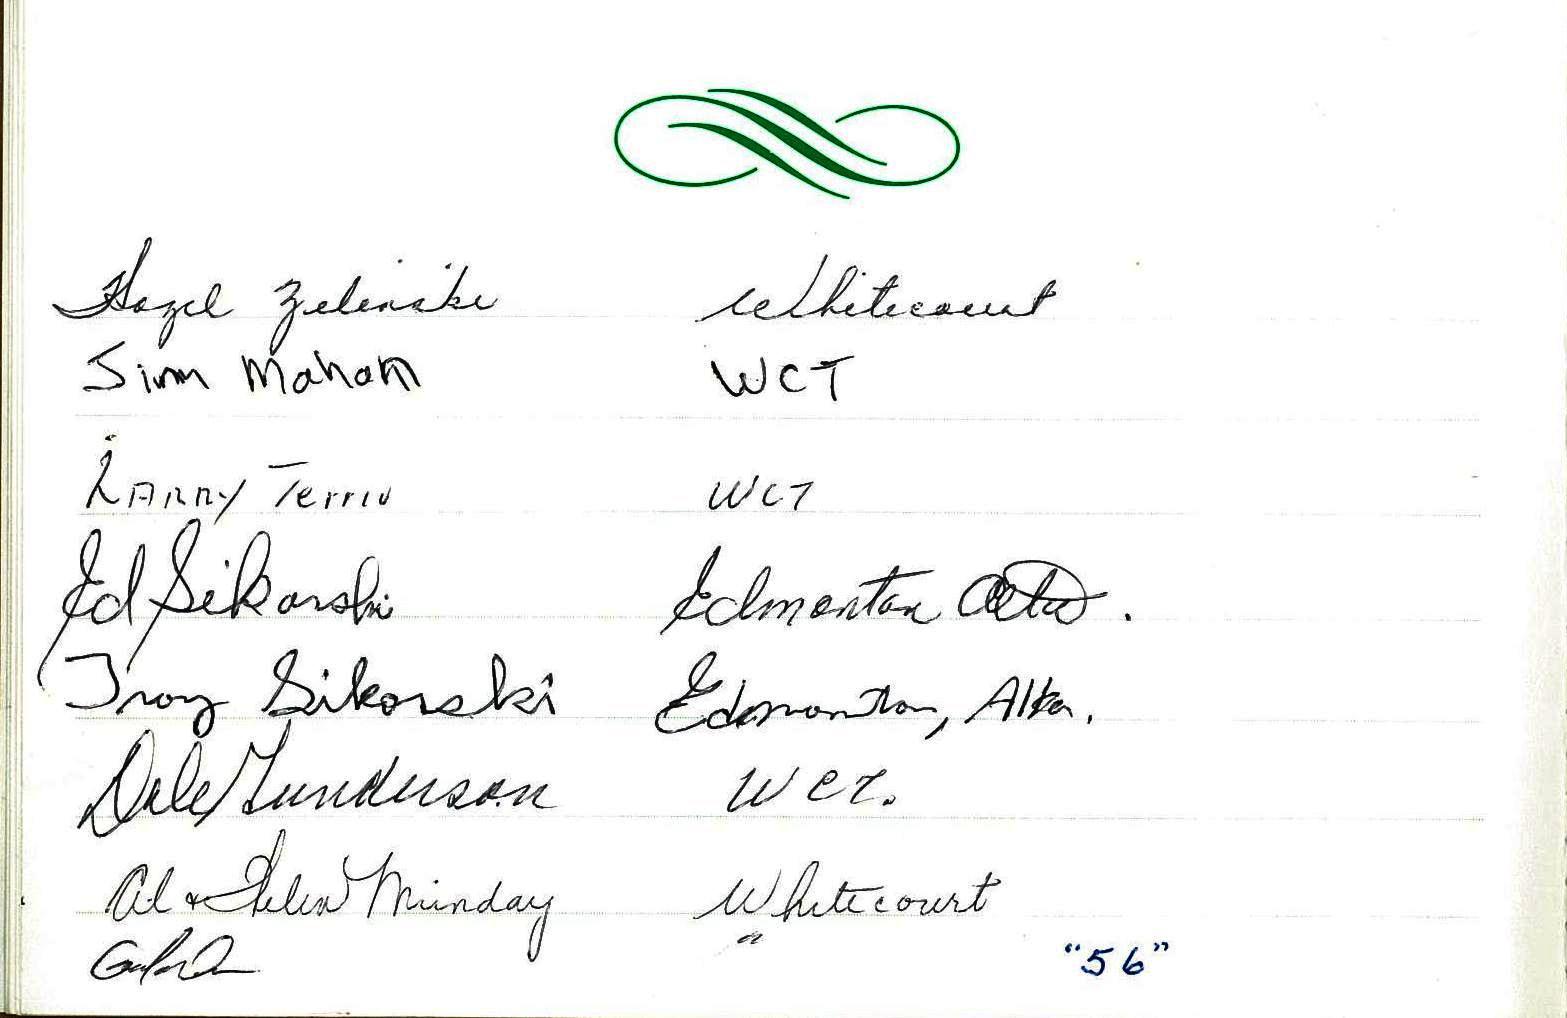 Hazel Zelinski Whitecourt
Jim Mahan WCT
LARRY Terrio WCT
Ed Sikorski Edmonton Alta.
Troy Sikorski Edmonton, Alta.
Dale Gunderson WCT.
Al & Helen Munday Whitecourt
" "56"